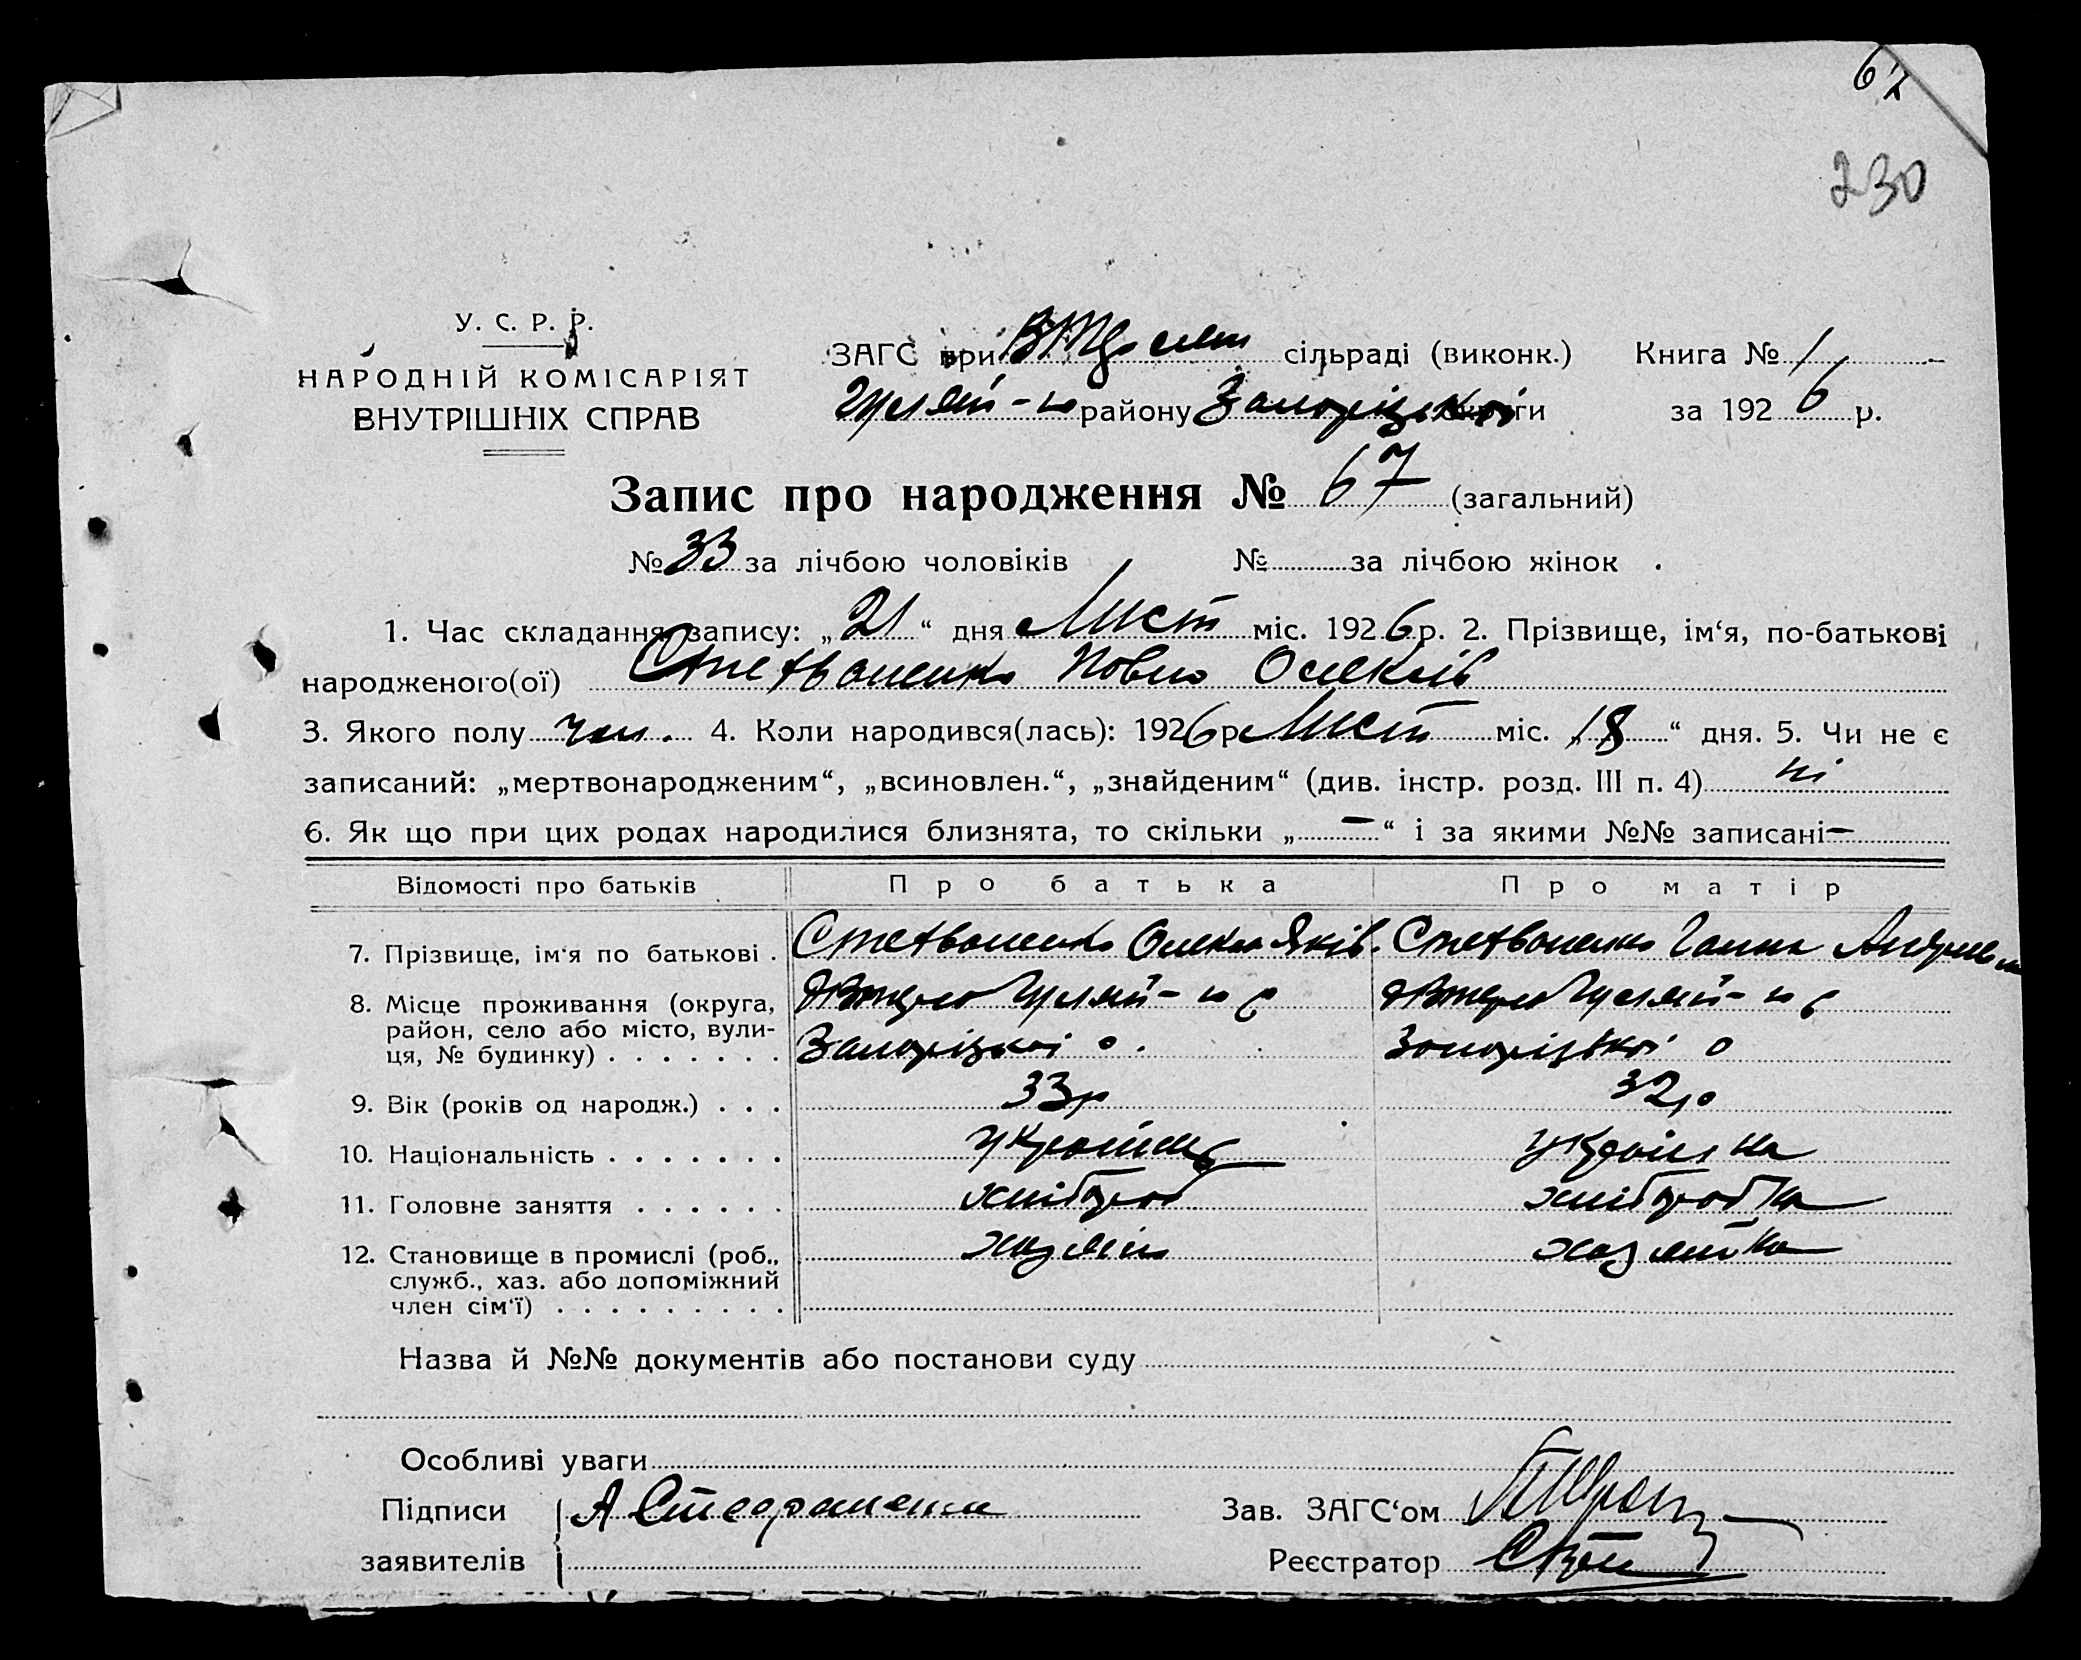 67
230
У. С. Р. Р.
НАРОДНІЙ КОМІСАРІЯТ
ВНУТРІШНІХ СПРАВ
ЗАГС при сільраді (виконк.) Книга № 1
Гуляй-го району Запорізької округи за 1926 р.
Запис про народження № 67 (загальний)
№ 33 за лічбою чоловіків № за лічбою жінок
1. Час складання запису: „21“ дня Лист міс. 1926 р. 2. Прізвище, ім‘я, по-батькові
народженого(ої) Павло Олексів
3. Якого полу чол. 4. Коли народився(лась): 1926 р Лист міс. „18“ дня. 5. Чи не є
записаний: „мертвонародженим“, „всиновлен.“, „знайденим“ (див. інстр. розд. III п. 4) ні
6. Як що при цих родах народилися близнята, то скільки „—“ і за якими №№ записані —
Відомості про батьків Про батька Про матір
7. Прізвище, ім‘я по батькові . Олекса Яків. Ганна
8. Місце проживання (округа, Гуляй-го р Гуляй-го р
район, село або місто, вули-
ця, № будинку) . . . . . . . Запорізької о. Запорізької о
9. Вік (років од народж.) . . . 33р 32р
10. Національність . . . . . . . українець українка
11. Головне заняття . . . . . . хлібороб хліборобка
12. Становище в промислі (роб., хазяїн хазяйка
служб., хаз. або допоміжний
член сім‘ї) . . . . . . . . .
Назва й №№ документів або постанови суду
Особливі уваги
Підписи А Зав. ЗАГС‘ом
заявителів Реєстратор